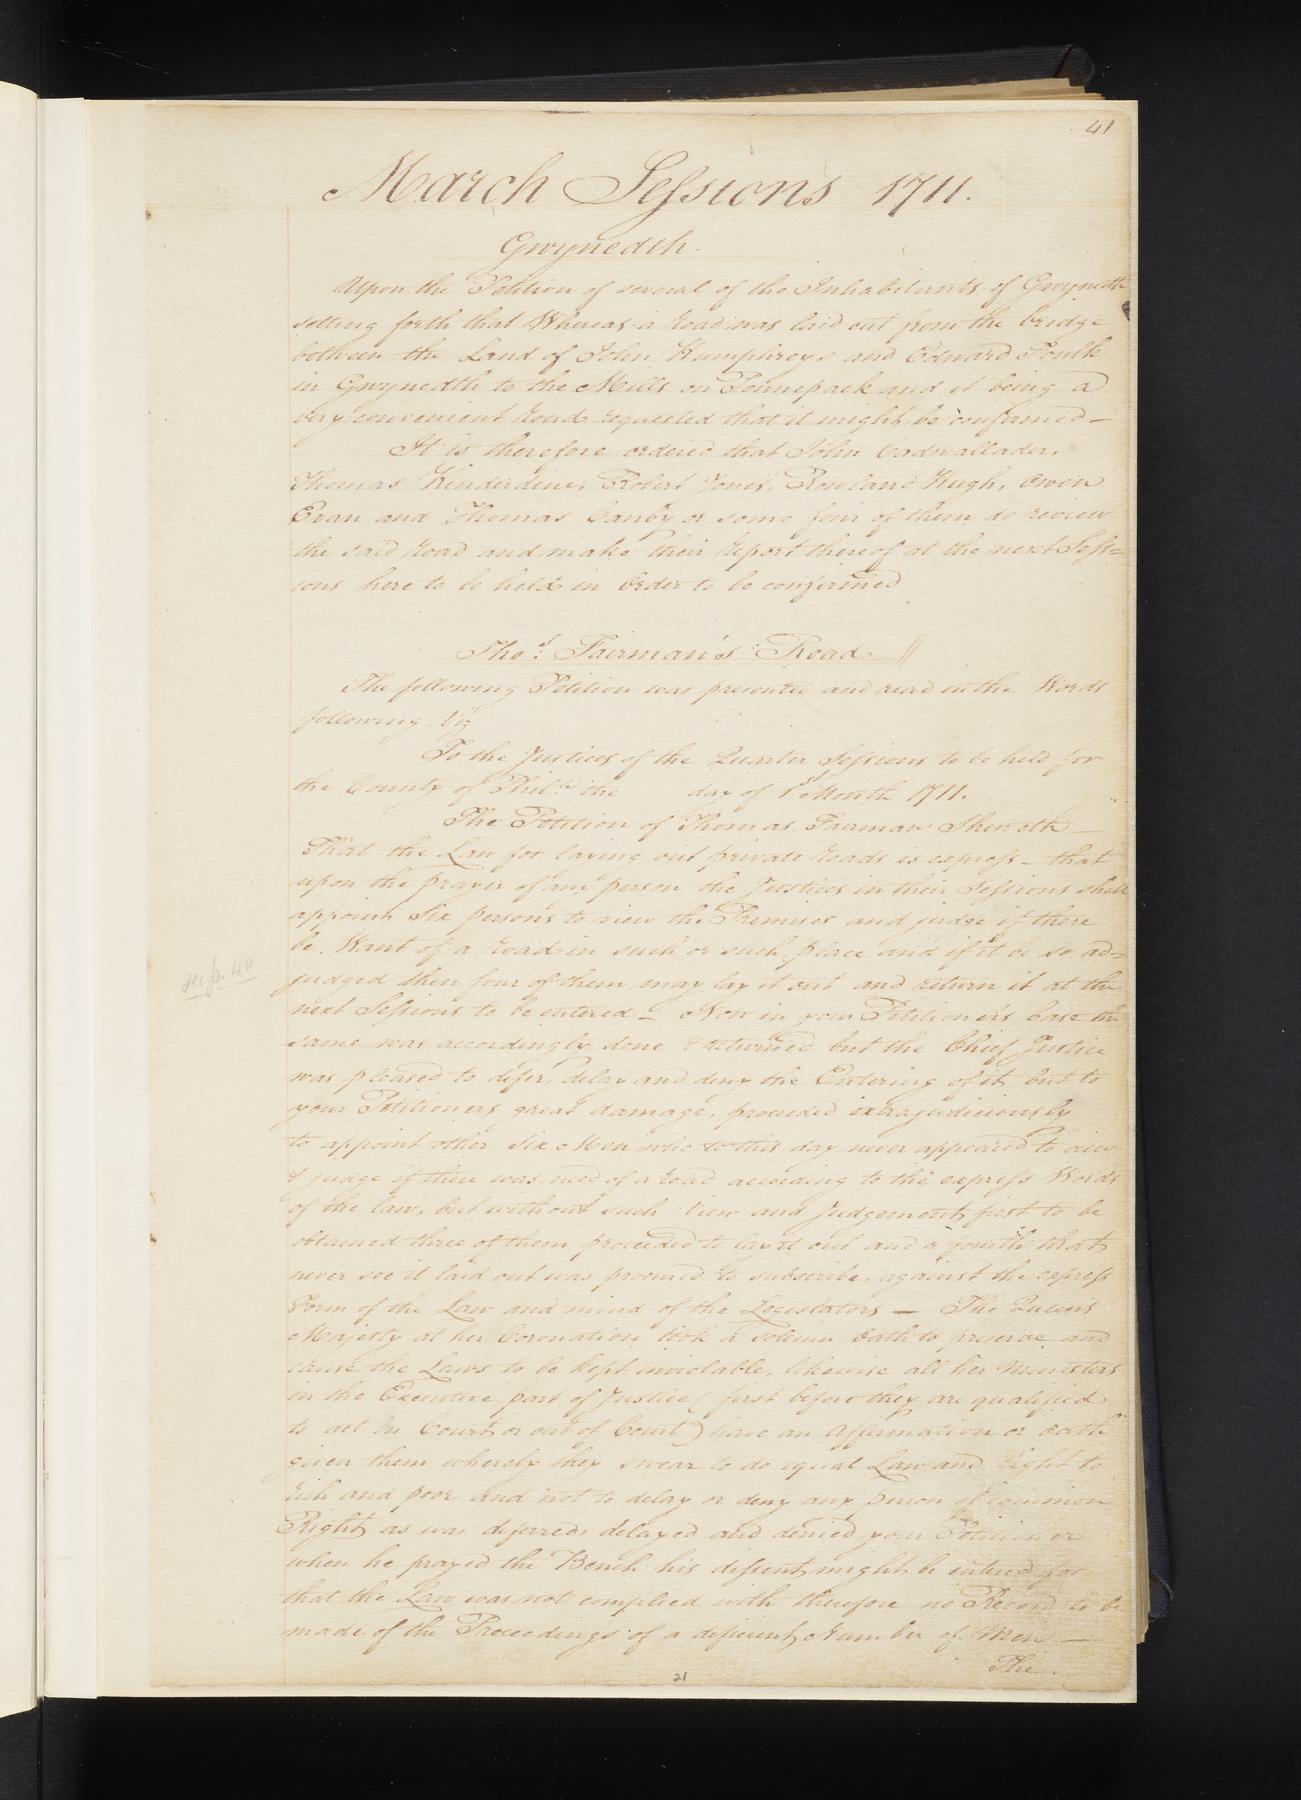 41
March Sessions 1711.
Gwynedth.
Upon the Petition of several of the Inhabitants of Gwynedth
setting forth that Whereas a Road was laid out from the bridge
between the Land of John Humphreys and Edward Foulk
in Gwynedth to the Mills on Pennepack and it being a
very convenient Road requested that it might be confirmed –
It is therefore ordered that John Cadwallader,
Thomas Kinderdine, Robert Jones, Rowland Hugh, Owen
Evan and Thomas Canby or some four of them do review
the said Road and make their Report thereof at the next Sess=
ions here to be held in Order to be confirmed
Thos: Fairman's Road
The following Petition was presented and read in the Words
following Viz
To the Justices of the Quarter Sessions to be held for
the County of Philda the day of 1st Month 1711.
The Petition of Thomas Fairman Sheweth –
That the Law for laying out private Roads is express – that
upon the prayer of any person the Justices in their Sessions shall
appoint Six persons to view the Premises and judge if there
be Want of a Road in such or such place and if it be so ad=
judged then four of them may lay it out and return it at the
sup. 40
next Sessions to be entered – Now in your Petitioners Case the
same was accordingly done & returned but the Chief Justice
was pleased to defer, delay and deny the Entering of it but to
your Petitioners great damage, proceeded extrajudiciously
to appoint other Six Men who to this day never appeared to view
& judge if there was need of a Road according to the express Words
of the law, but without such View and Judgement first to be
obtained three of them proceeded to lay it out and a fourth that
never see it laid out was procured to subscribe, against the express
Form of the Law and mind of the Legislators – The Queen's
Majesty at her Coronation took a solemn Oath to preserve and
cause the Laws to be kept inviolable, likewise all her Ministers
in the Executive part of Justice (first before they are qualified
to act in Court or out of Court) have an Affirmation or Oath
given them whereby they swear to do equal Law and Right to
Rich and poor and not to delay or deny any person of common
Right, as was deferred, delayed and denied your Petitioner
when he prayed the Bench his dissent might be entered for
that the Law was not complied with therefore no Record to be
made of the Proceedings of a deficient Number of Men –
The
21